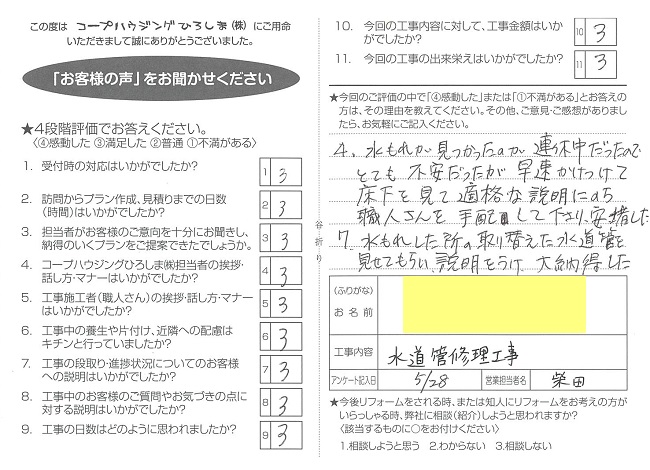 この度は コープハウジングひろしま(株) にご用命
いただきまして誠にありがとうございました。
「お客様の声」をお聞かせください
★4段階評価でお答えください。
〈④感動した ③満足した ②普通 ①不満がある〉
1. 受付時の対応はいかがでしたか?
1 3
2. 訪問からプラン作成、見積りまでの日数
(時間)はいかがでしたか?
2 3
3. 担当者がお客様のご意向を十分にお聞きし、
納得のいくプランをご提案できたでしょうか。
3 3
4. コープハウジングひろしま㈱担当者の挨拶・
話し方・マナーはいかがでしたか?
4 3
5. 工事施工者(職人さん)の挨拶・話し方・マナー
はいかがでしたか?
5 3
6. 工事中の養生や片付け、近隣への配慮は
キチンと行っていましたか?
6 3
7. 工事の段取り・進捗状況についてのお客様
への説明はいかがでしたか?
7 3
8. 工事中のお客様のご質問やお気づきの点に
対する説明はいかがでしたか?
8 3
9. 工事の日数はどのように思われましたか?
9 3
谷折り
10. 今回の工事内容に対して、工事金額はいか
がでしたか?
10 3
11. 今回の工事の出来栄えはいかがでしたか?
11 3
★今回のご評価の中で「④感動した」または「①不満がある」とお答えの
方は、その理由を教えてください。その他、ご意見・ご感想がありまし
たら、お気軽にご記入ください。
4. 水もれが見つかったのが連休中だったので
とても不安だったが早速かけつけて
床下を見て適格な説明にのち
職人さんを手配して下さり、安堵した
7. 水もれした所の取り替えた水道管を
見せてもらい、説明をうけ、大納得した
(ふりがな)
お名前
工事内容 水道管修理工事
アンケート記入日 5/28 営業担当者名 柴田
★今後リフォームをされる時、または知人にリフォームをお考えの方が
いらっしゃる時、弊社に相談(紹介)しようと思われますか?
〈該当するものに○をお付けください〉
1.相談しようと思う 2.わからない 3.相談しない